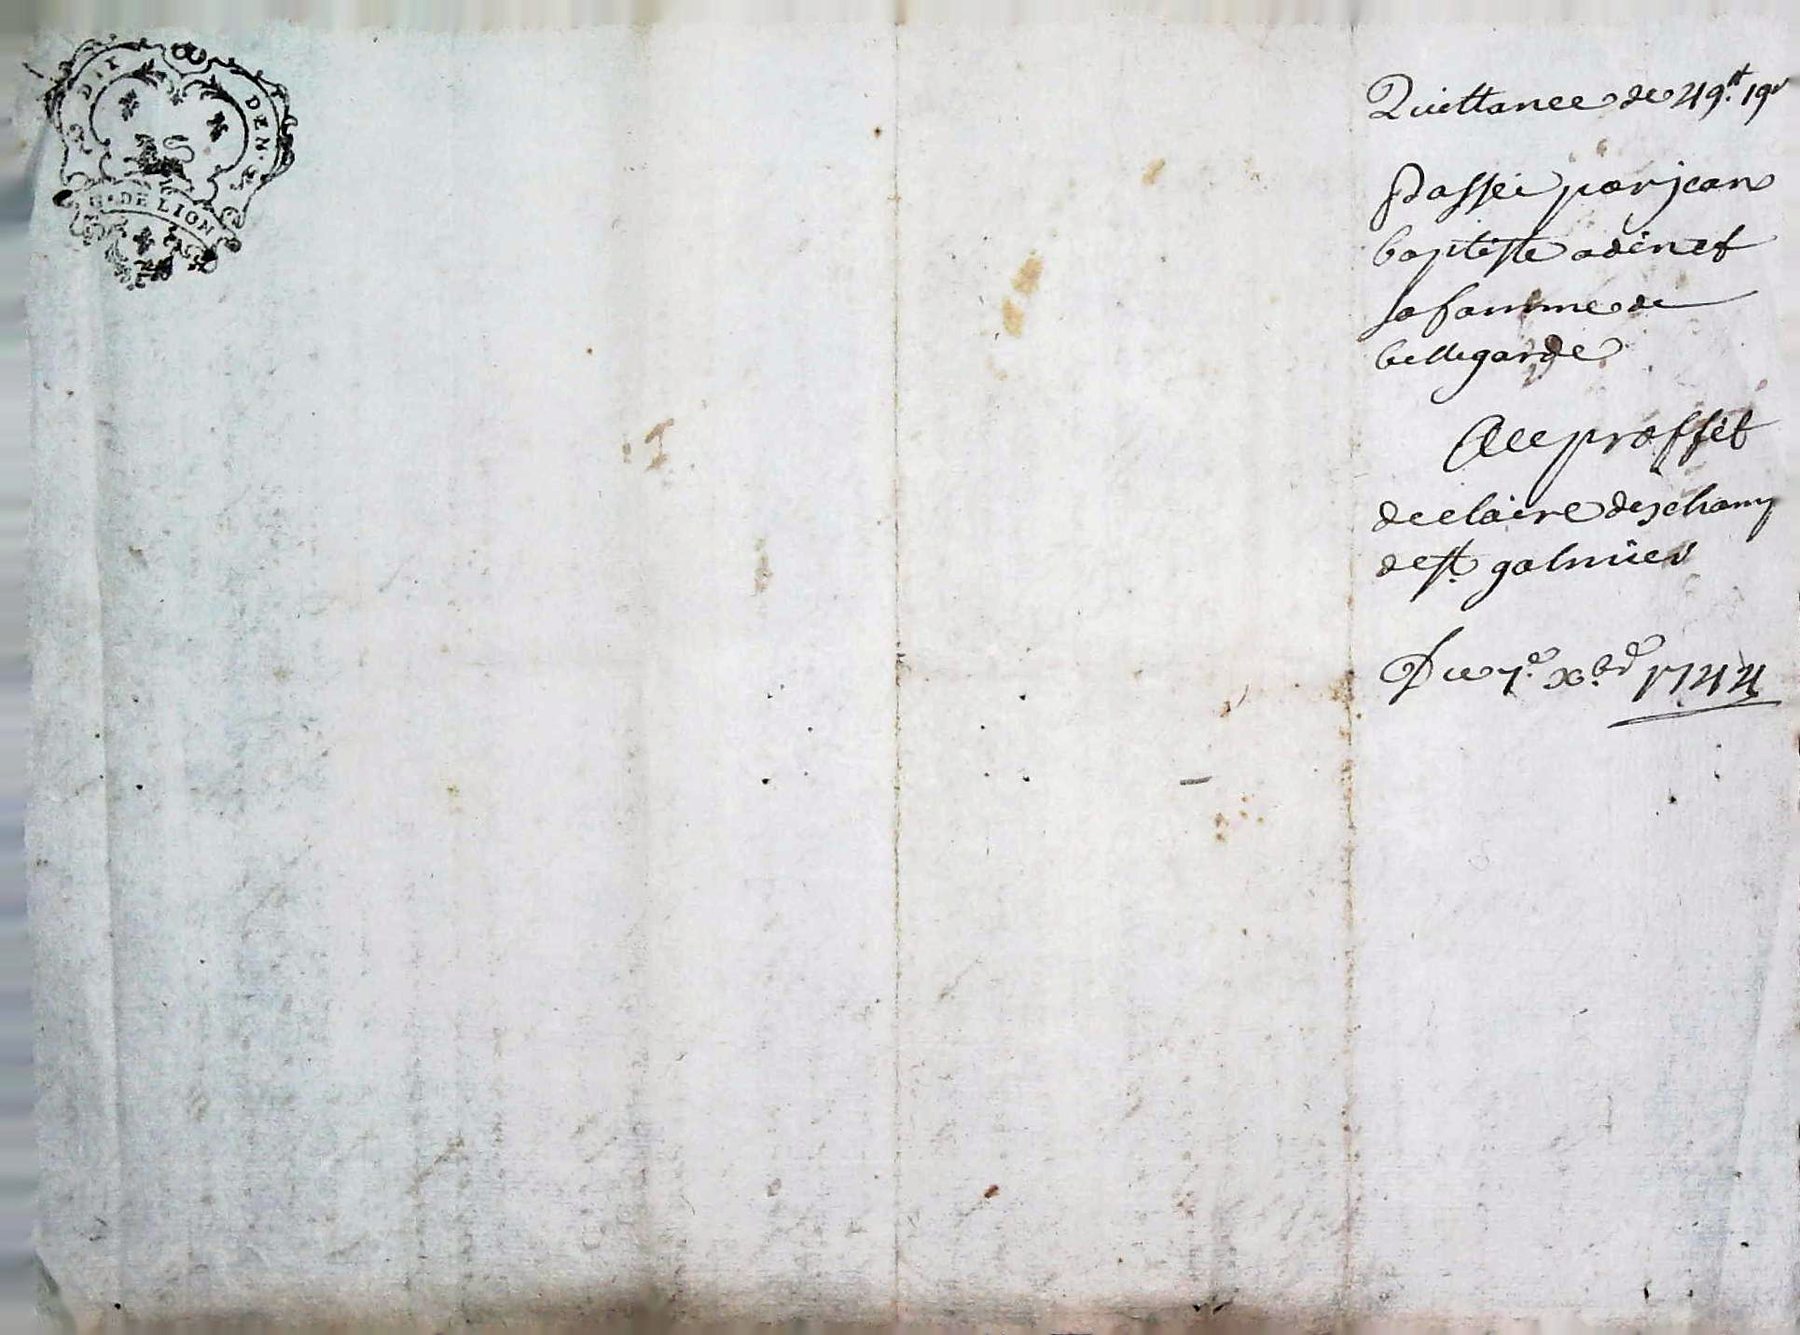 DIX DEN.
G. DE LION
Quittance de 49.lt 19s
Passée par jean
baptiste adin et
sa famme de
bellegarde
Au proffit
de claire deschamp
de st. galmier
Du 7.e xbre 1744